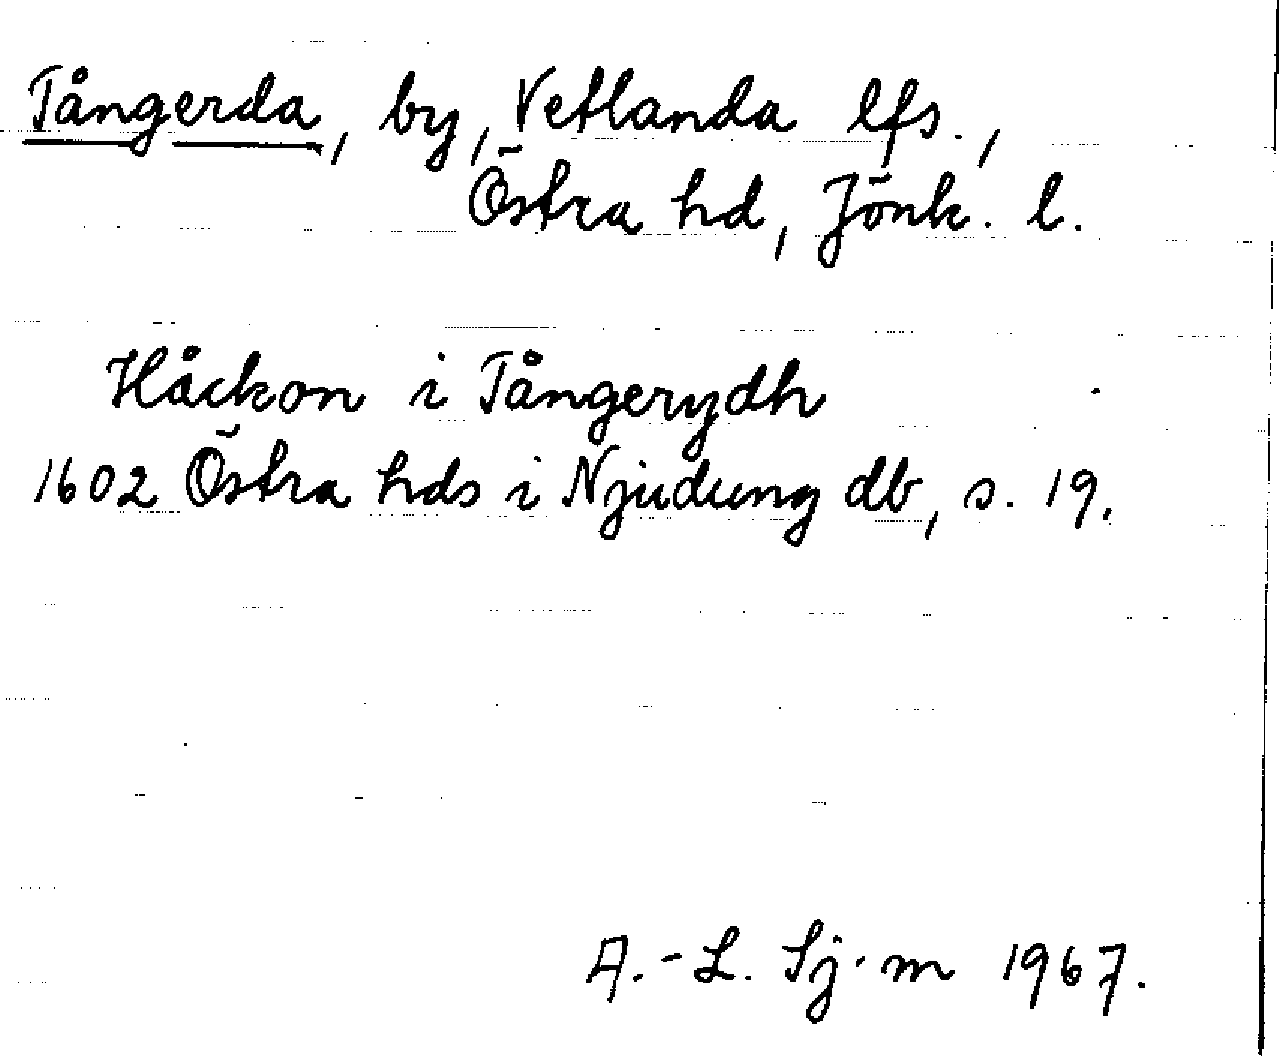 Tångerda, by, Vetlanda lfs.,
Östra hd, Jönk. l.
Håckon i Tångerydh
1602 Östra hds i Njudung db, s. 19.
A.-L. Sj·m 1967.